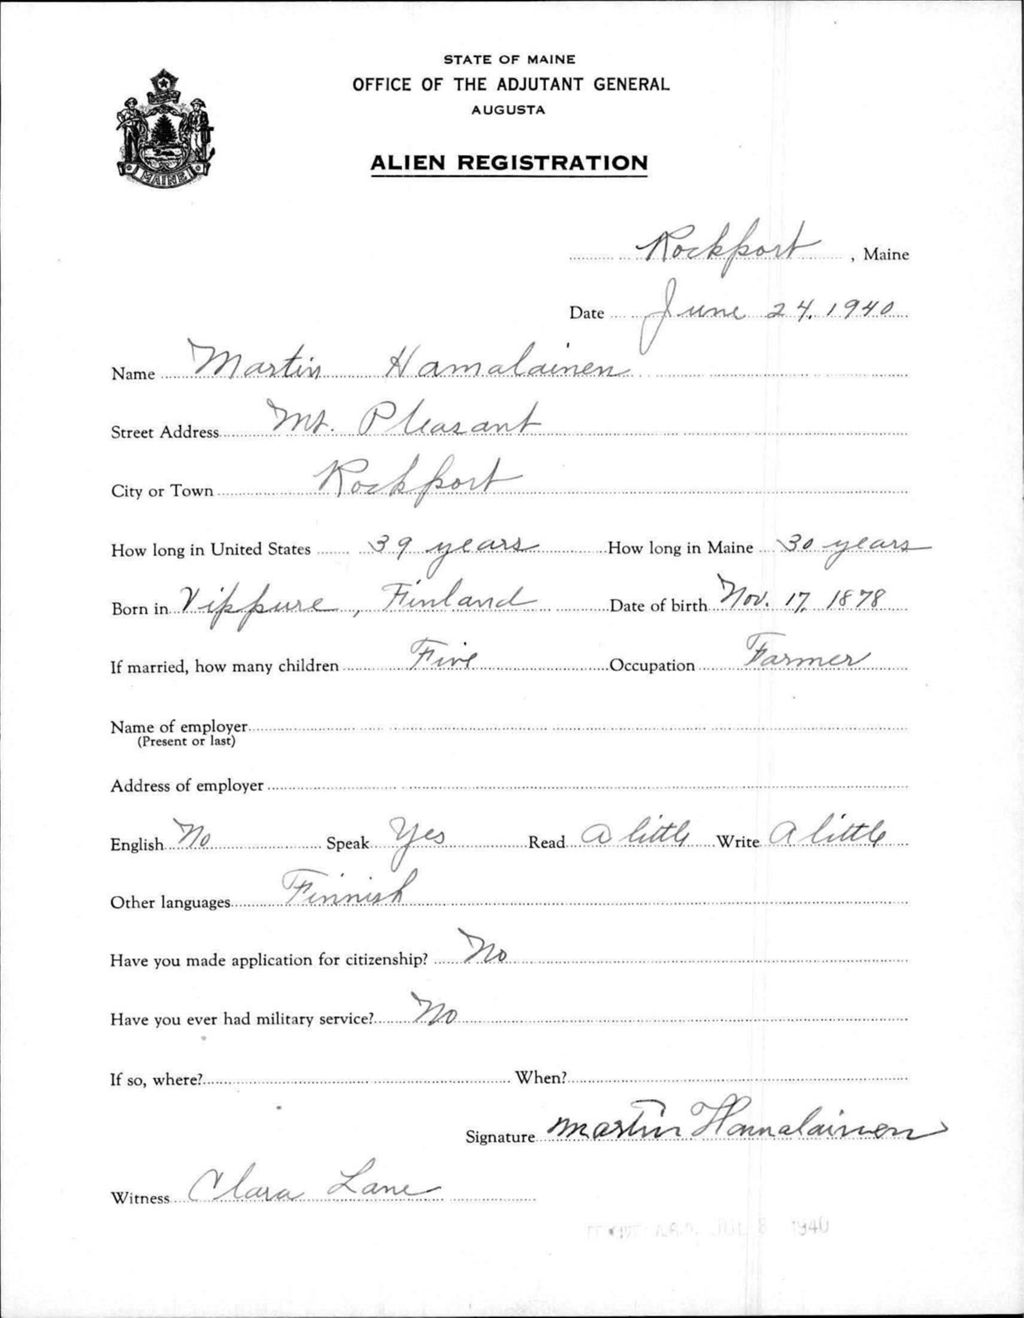 STATE OF MAINE
OFFICE OF THE ADJUTANT GENERAL
AUGUSTA
ALIEN REGISTRATION
MAINE
Rockport, Maine
Date June 24, 1940
Name Martin Hamalainen
Street Address Mt. Pleasant
City or Town Rockport
How long in United States 39 years How long in Maine 30 years
Born in Vippure, Finland Date of birth Nov. 17, 1878
If married, how many children Five Occupation Farmer
Name of employer
(Present or last)
Address of employer
English No Speak Yes Read A little Write A little
Other languages Finnish
Have you made application for citizenship? No
Have you ever had military service? No
If so, where? When?
Signature Martin Hamalainen
Witness Clara Lane
JUL 8 1940